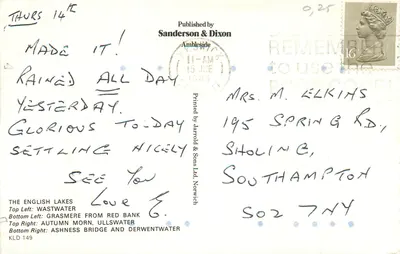 THURS 14TH
MADE IT!
RAINED ALL DAY
YESTERDAY.
GLORIOUS TO-DAY
SETTLING NICELY
SEE YOU
LOVE E.
THE ENGLISH LAKES
Top Left: WASTWATER
Bottom Left: GRASMERE FROM RED BANK
Top Right: AUTUMN MORN, ULLSWATER
Bottom Right: ASHNESS BRIDGE AND DERWENTWATER
KLD 149
Published by
Sanderson & Dixon
Ambleside
Printed by Jarrold & Sons Ltd, Norwich
0,25
11-AM
REMEMBER
TO USE THE
MRS. M. ELKINS
195 SPRING RD.,
SHOLING,
SOUTHAMPTON
SO2 7NY